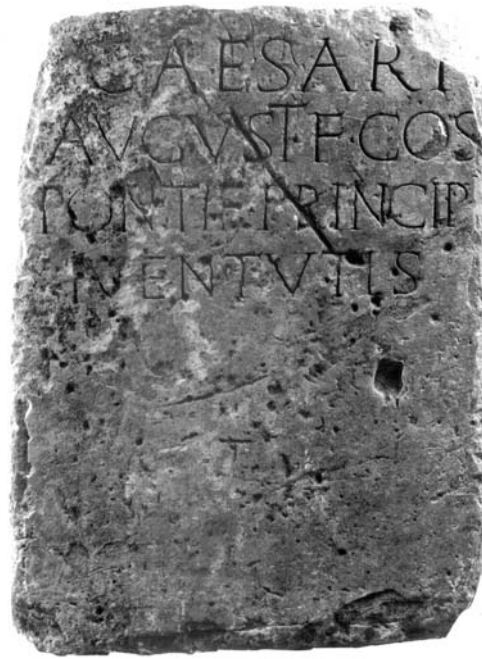 CAESARI
AVGVSTI·F·COS
PONTIF·PRINCIPI
IVENTVTIS